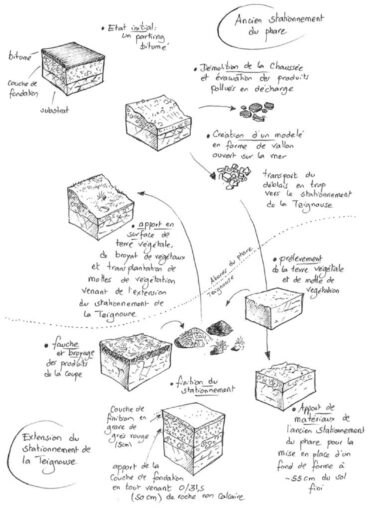 Ancien stationnement
du phare
• Etat initial :
un parking
bitumé
bitume
couche de
fondation
substrat
• Démolition de la Chaussée
et évacuation des produits
pollués en décharge
• Création d'un modelé
en forme de vallon
ouvert sur la mer
transport du
déblais en trop
vers le stationnement
de la Teignouse
• apport en
surface de
terre végétale,
de broyat de végétaux
et transplantation de
mottes de végétation
venant de l'extension
du stationnement de
la Teignouse
Abords du phare
Teignouse
• prélèvement
de la terre végétale
et de motte de
végétation
• fauche
et broyage
des produits
de la coupe
• finition du
stationnement
Couche de
finition en
grave de
grès rouge
15cm
apport de la
Couche de fondation
en tout venant 0/31,5
(50 cm) de roche non calcaire
• Apport de
matériaux de
l'ancien stationnement
du phare pour la
mise en place d'un
fond de forme à
-55 cm du sol
fini
Extension du
stationnement de
la Teignouse